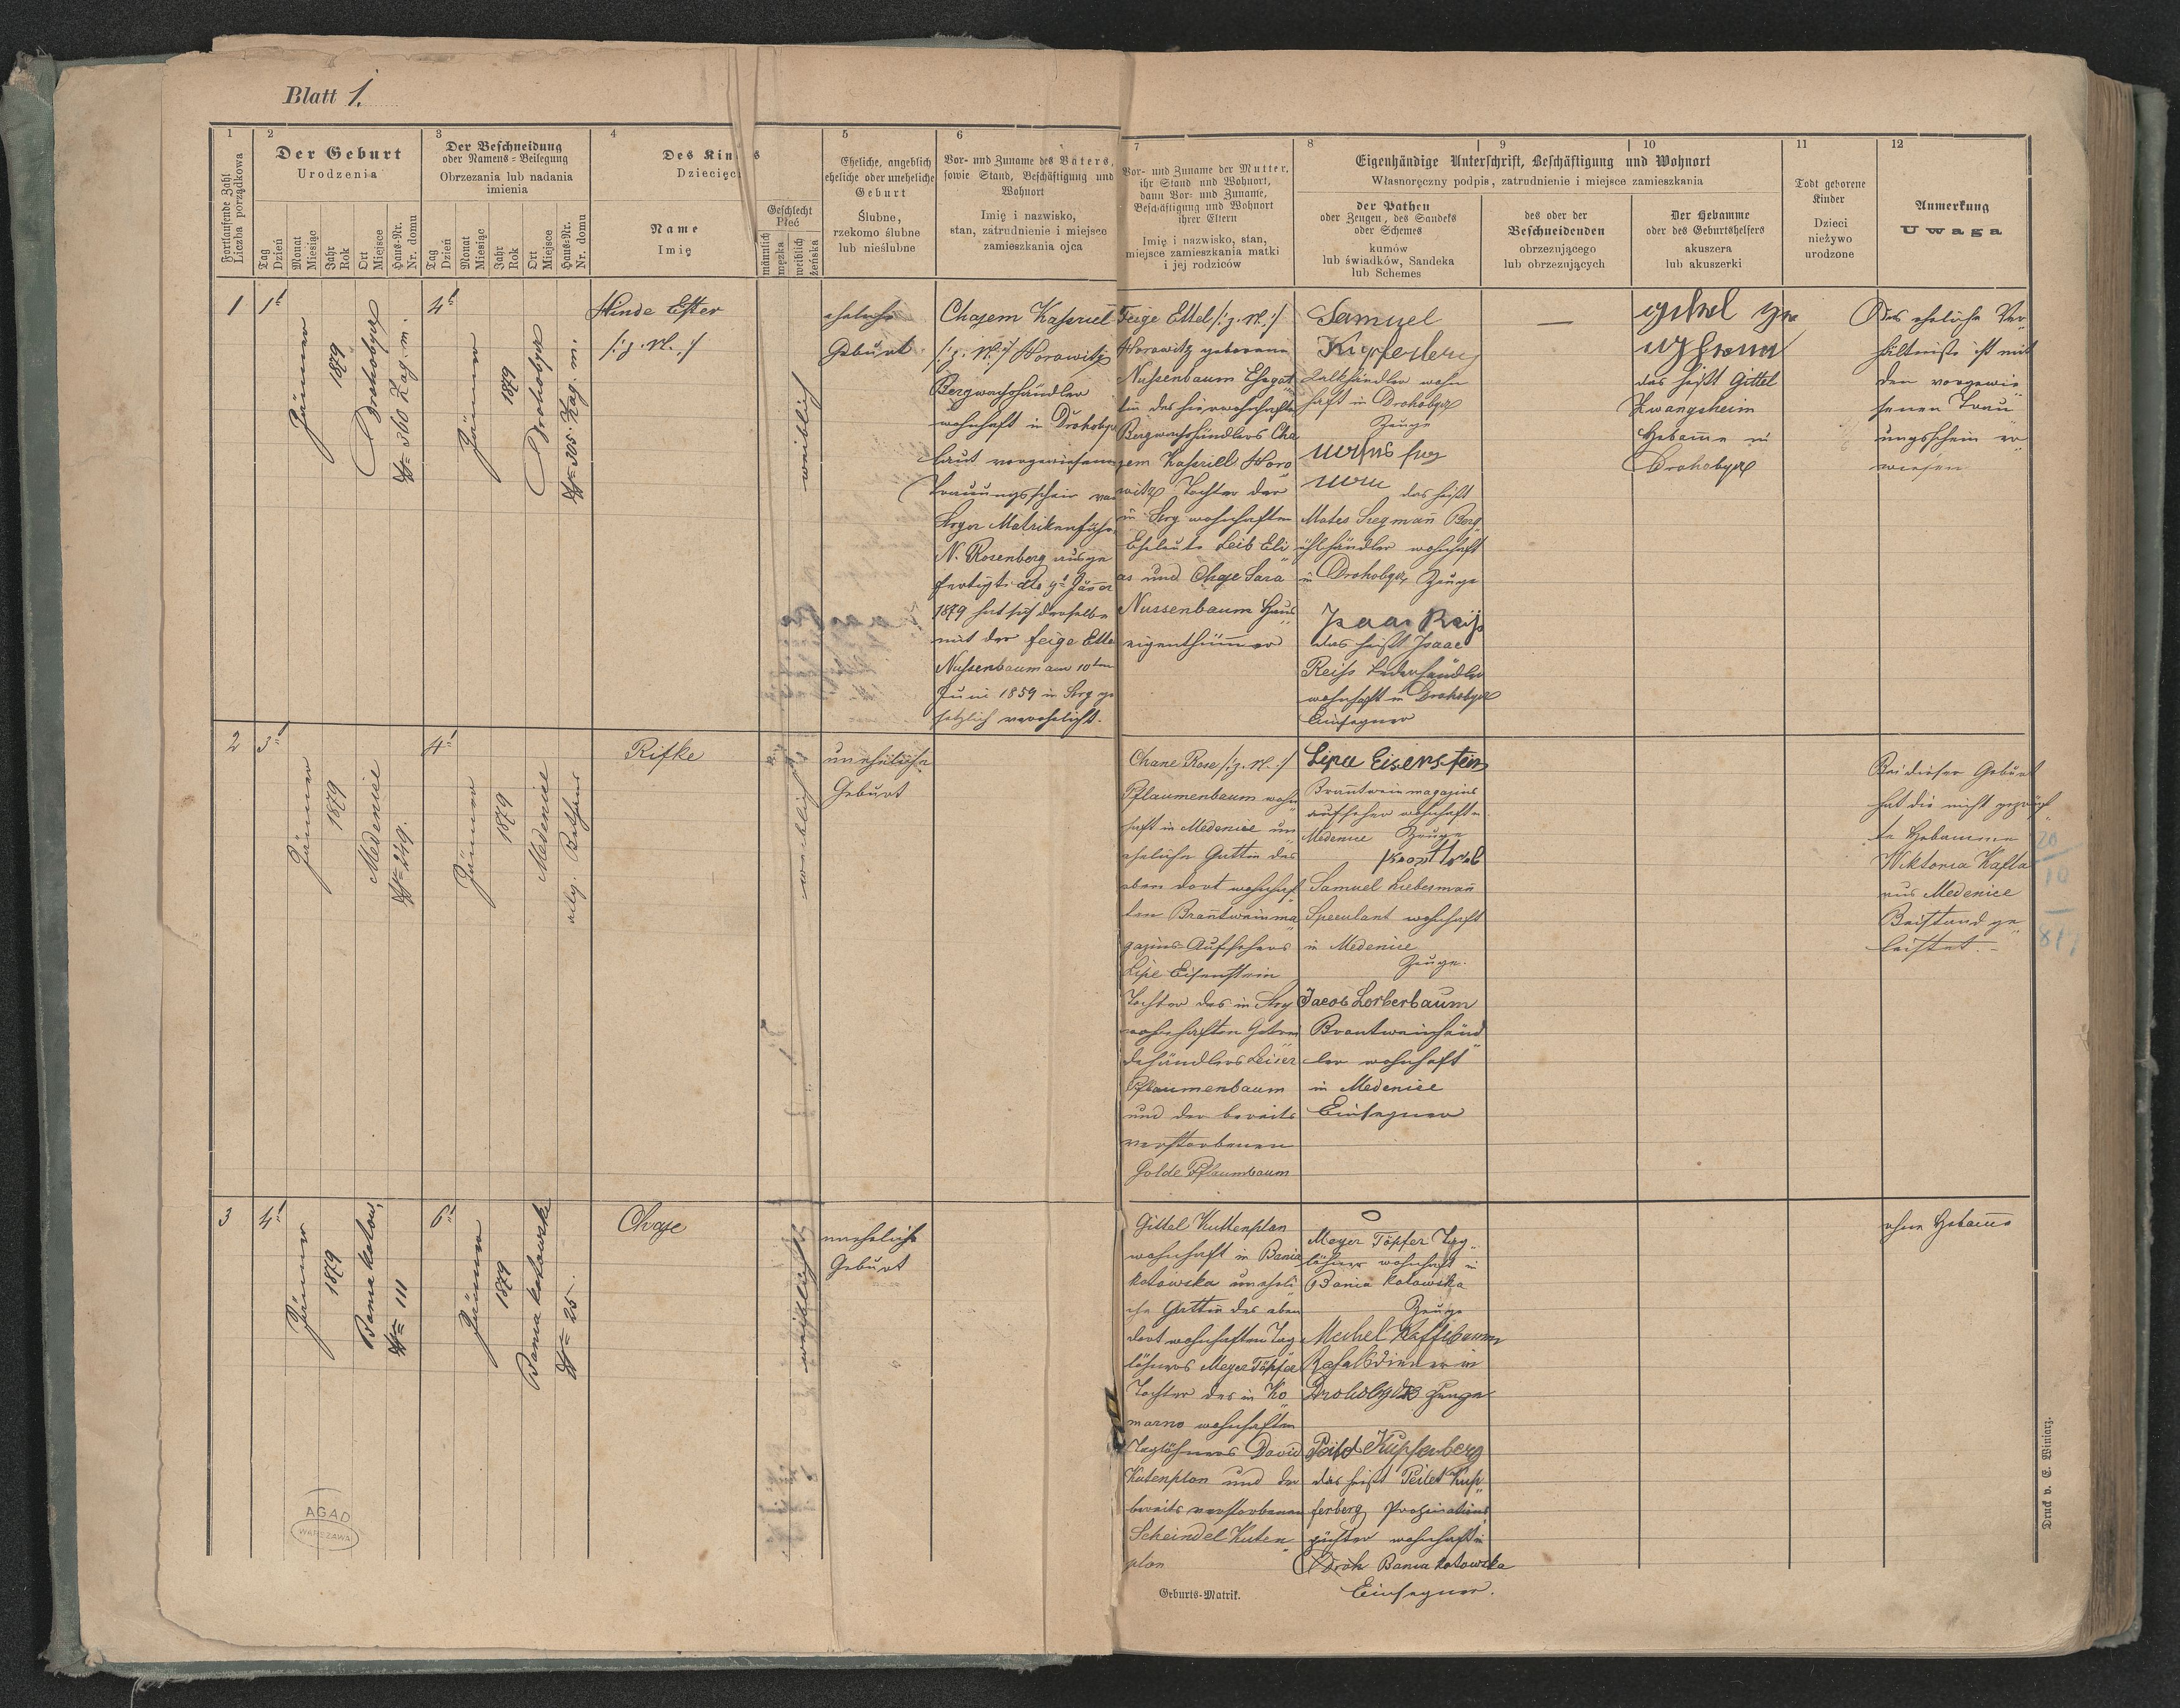 Blatt 1.
1
Fortlaufende Zahl
Liczba porządkowa
2
Der Geburt
Urodzenia
Tag
Dzień
Monat
Miesiąc
Jahr
Rok
Ort
Miejsce
Haus-Nr.
Nr. domu
3
Der Beschneidung
oder Namens-Beilegung
Obrzezania lub nadania
imienia
Tag
Dzień
Monat
Miesiąc
Jahr
Rok
Ort
Miejsce
Haus-Nr.
Nr. domu
4
Des Kindes
Dziecięcia
Name
Imię
Geschlecht
Płeć
männlich
męzka
weiblich
żeńska
5
Eheliche, angeblich
eheliche oder uneheliche
Geburt
Ślubne,
rzekomo ślubne
lub nieślubne
6
Vor- und Zuname des Vaters,
sowie Stand, Beschäftigung und
Wohnort
Imię i nazwisko,
stan, zatrudnienie i miejsce
zamieszkania ojca
7
Vor- und Zuname der Mutter,
ihr Stand und Wohnort,
dann Vor- und Zuname,
Beschäftigung und Wohnort
ihrer Eltern
Imię i nazwisko, stan,
miejsce zamieszkania matki
i jej rodziców
8
9
10
Eigenhändige Unterschrift, Beschäftigung und Wohnort
Własnoręczny podpis, zatrudnienie i miejsce zamieszkania
der Pathen
oder Zeugen, des Sandeks
oder Schemes
kumów
lub świadków, Sandeka
lub Schemes
des oder der
Beschneidenden
obrzezującego
lub obrzezujących
Der Hebamme
oder des Geburtshelfers
akuszera
lub akuszerki
11
Todt geborene
Kinder
Dzieci
nieżywo
urodzone
12
Anmerkung
Uwaga
1
1t
Jänner
1879
Drohobycz
Nr 360 Zag. m.
4t
Jänner
1879
Drohobycz
Nr 305 Zag. m.
Hinde Ester
/:z. N.:/
weiblich
eheliche
Geburt
Chajem Kasriel
/:z. N.:/ Horowitz
Bergwachshändler
wohnhaft in Drohobycz
laut vorgewiesenen
Trauungsschein vom
Stryer Matrikenführer
N. Rosenberg ausge
fertigt dto Jänner
1879 hat sich derselbe
mit der Feige Ettel
Nussenbaum am 10ten
Juni 1859 in Stry ge
setzlich verehelicht.
Feige Ettel /:z. N.:/
Horowitz geborene
Nussenbaum Ehegat
tin des hierwohnhaften
Bergwachshändlers Cha
jem Kasriel Horo
witz Tochter der
in Stry wohnhaften
Eheleute Leib Eli
as und Chaje Sara
Nussenbaum Haus
eigenthümer
Samuel
Kupferberg
Kalkhändler wohn
haft in Drohobycz
Zeuge
das heißt
Mates Siegmann Berg
öhlhändler wohnhaft
in Drohobycz Zeuge
Isaac Reiß
das heißt Isaac
Reiss Lederhändler
wohnhaft in Drohobycz
Einsegner
—
das heißt Gittel
Zwangsheim
Hebamme in
Drohobycz
Das eheliche Ver
hältniss ist mit
den vorgewie
senen Trau
ungsschein er
wiesen
2
3t
Jänner
1879
Medenice
Nr 249.
4t
Jänner
1879
Medenice
Bethaus
Rifke
weiblich
uneheliche
Geburt
Chane Rose /:z. N.:/
Pflaumenbaum wohn
haft in Medenice un
eheliche Gattin des
eben dort wohnhaf
ten Branntweinma
gazins-Aufsehers
Lipe Eisenstein
Tochter des in Stry
wohnhaften Getrei
dehändlers Leiser
Pflaumenbaum
und der bereits
verstorbenen
Golde Pflaumbaum
Lipa Eisenstein
Branntweinmagazins
aufseher wohnhaft in
Medenice Zeuge
Samuel Liebermann
Speculant wohnhaft
in Medenice
Zeuge.
Jacob Lorberbaum
Brantweinhänd
ler wohnhaft
in Medenice
Einsegner
Bei dieser Geburt
hat die nicht geprüf
te Hebamme
Wiktoria Kafta
aus Medenice
Beistand ge
leistet.
3
4t
Jänner
1879
Bania kotow.
Nr 111
6t
Jänner
1879
Bania kotowska
Nr 25.
Chaje
weiblich
uneheliche
Geburt
Gittel Kuttenplan
wohnhaft in Bania
kotowska uneheli
che Gattin des eben
dort wohnhaften Tag
löhners Meyer Töpfer
Tochter des in Ko
marno wohnhaften
Taglöhners David
Kutenplan und der
bereits verstorbenen
Scheindel Kuten
plan
O
Meyer Töpfer Tag
löhner wohnhaft in
Bania kotowska
Zeuge
Mechel Raffebaum
Kahalsdiener in
Drohobycz Zeuge
Peiled Kupferberg
das heißt Peiled Kup
ferberg Propinations
pächter wohnhaft in
Droh Bania kotowska
Einsegner.
ohne Hebamme
AGAD
WARSZAWA
Geburts-Matrik.
Druck v. E. Winiarz.